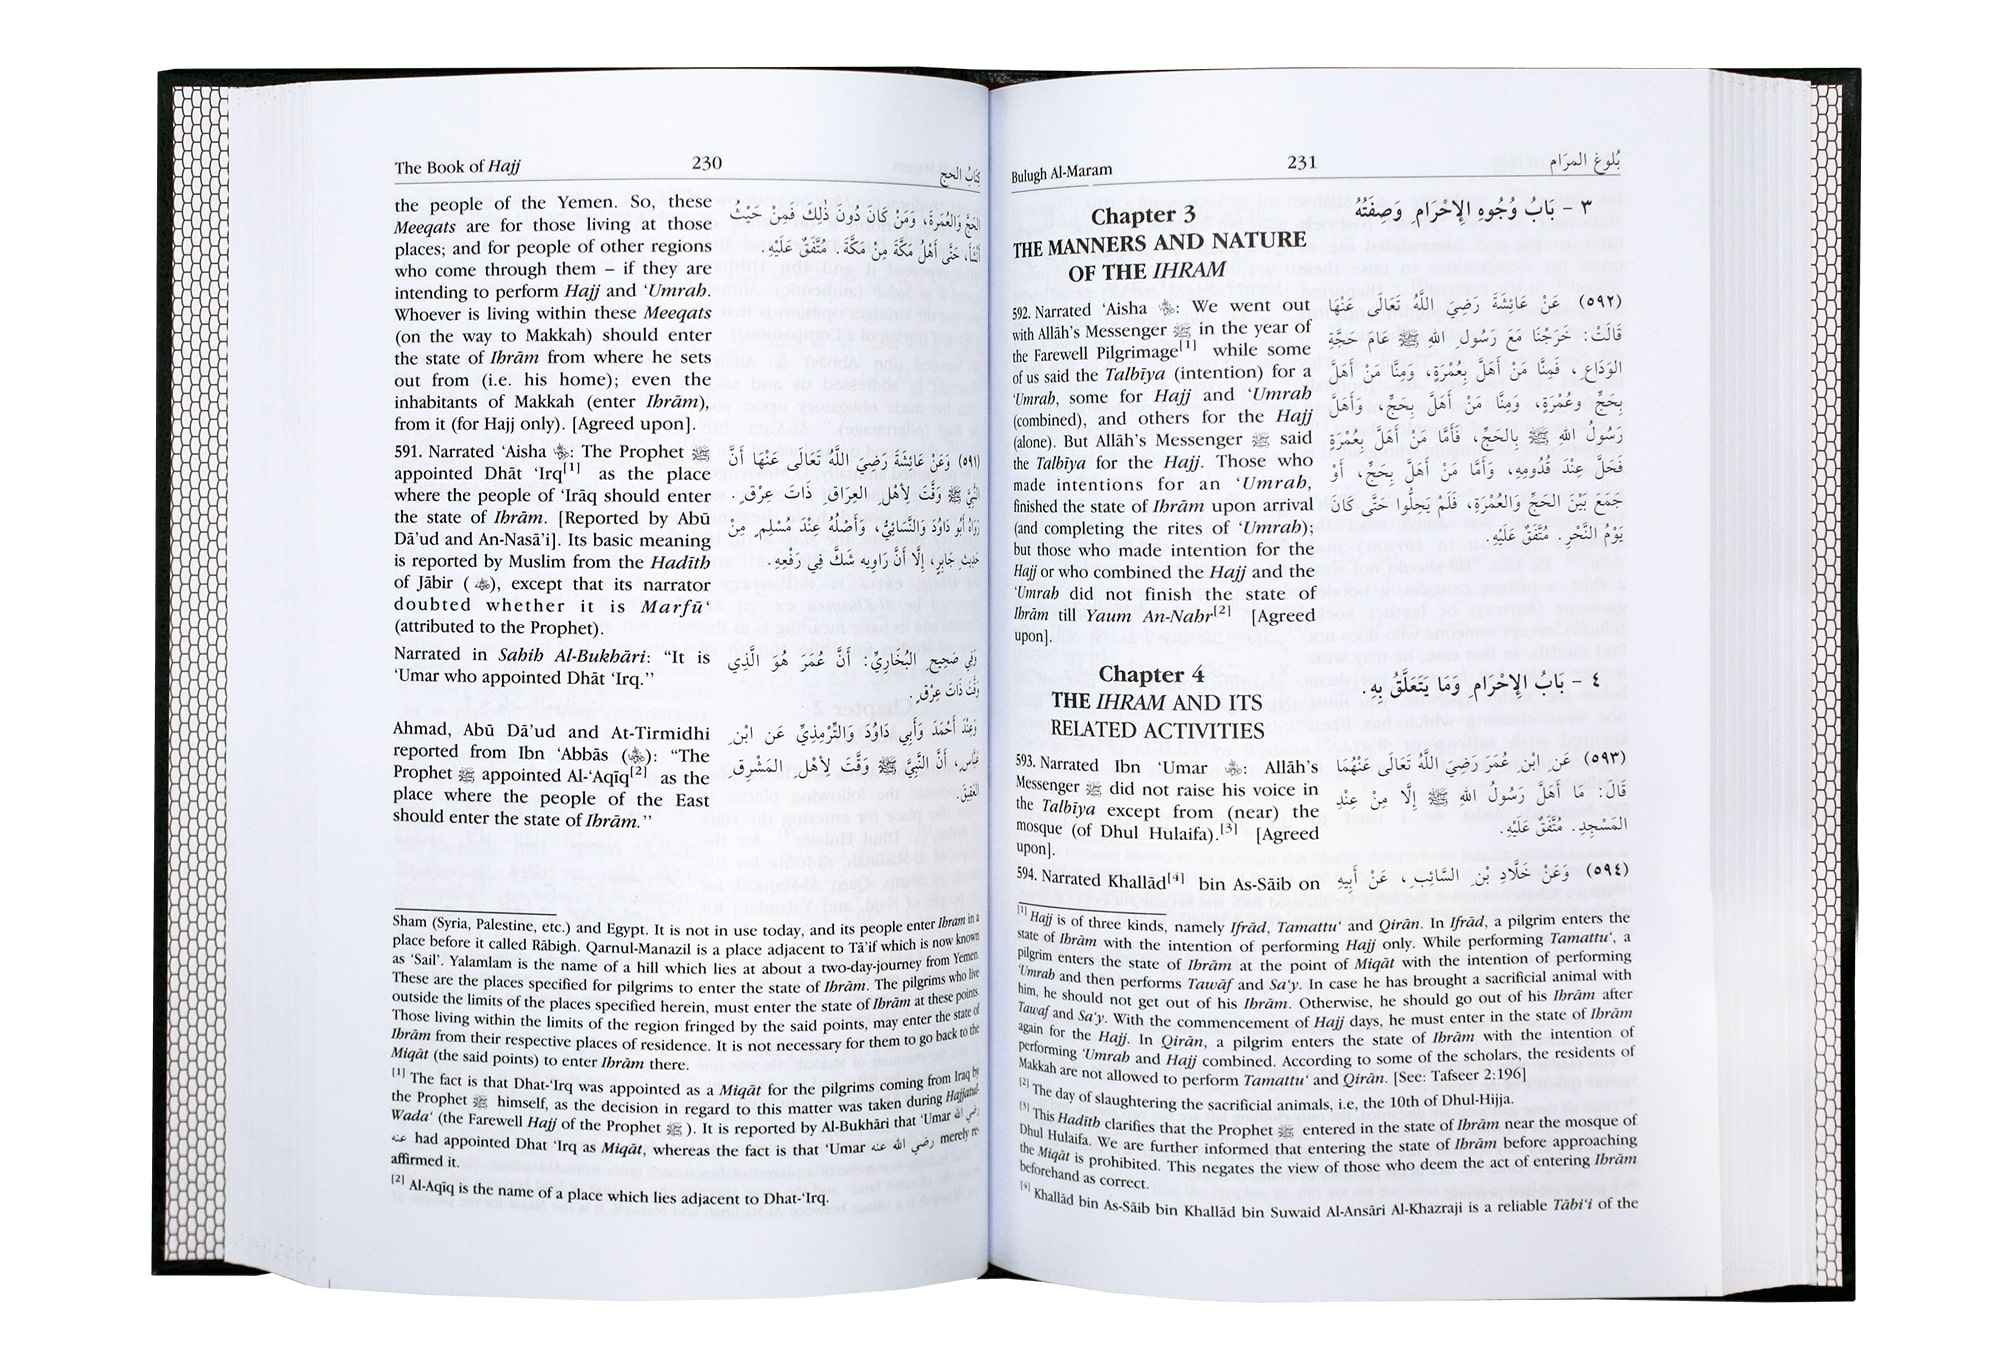 The Book of Hajj 230 كِتَابُ الحج
the people of the Yemen. So, these
Meeqats are for those living at those
places; and for people of other regions
who come through them – if they are
intending to perform Hajj and ‘Umrah.
Whoever is living within these Meeqats
(on the way to Makkah) should enter
the state of Ihrām from where he sets
out from (i.e. his home); even the
inhabitants of Makkah (enter Ihrām),
from it (for Hajj only). [Agreed upon].
الحَجَّ وَالعُمْرَةَ، وَمَنْ كَانَ دُونَ ذٰلِكَ فَمِنْ حَيْثُ
أَنْشَأَ، حَتَّى أَهْلُ مَكَّةَ مِنْ مَكَّةَ. مُتَّفَقٌ عَلَيْهِ.
591. Narrated ‘Aisha: The Prophet ﷺ
appointed Dhāt ‘Irq[1] as the place
where the people of ‘Irāq should enter
the state of Ihrām. [Reported by Abū
Dā’ud and An-Nasā’i]. Its basic meaning
is reported by Muslim from the Hadīth
of Jābir ( ), except that its narrator
doubted whether it is Marfū‘
(attributed to the Prophet).
(٥٩١) وَعَنْ عَائِشَةَ رَضِيَ اللَّهُ تَعَالَى عَنْهَا أَنَّ
النَّبِيَّ ﷺ وَقَّتَ لِأَهْلِ العِرَاقِ ذَاتَ عِرْقٍ.
رَوَاهُ أَبُو دَاوُدَ وَالنَّسَائِيُّ، وَأَصْلُهُ عِنْدَ مُسْلِمٍ مِنْ
حَدِيثِ جَابِرٍ، إِلَّا أَنَّ رَاوِيه شَكَّ فِي رَفْعِهِ.
Narrated in Sahih Al-Bukhāri: “It is
‘Umar who appointed Dhāt ‘Irq.’’
وَفِي صَحِيحِ البُخَارِيِّ: أَنَّ عُمَرَ هُوَ الَّذِي
وَقَّتَ ذَاتَ عِرْقٍ.
Ahmad, Abū Dā’ud and At-Tirmidhi
reported from Ibn ‘Abbās ( ): “The
Prophet ﷺ appointed Al-‘Aqīq[2] as the
place where the people of the East
should enter the state of Ihrām.’’
وَعِنْدَ أَحْمَدَ وَأَبِي دَاوُدَ وَالتِّرْمِذِيِّ عَنِ ابْنِ
عَبَّاسٍ، أَنَّ النَّبِيَّ ﷺ وَقَّتَ لِأَهْلِ المَشْرِقِ
العَقِيقَ.
Sham (Syria, Palestine, etc.) and Egypt. It is not in use today, and its people enter Ihram in a
place before it called Rābigh. Qarnul-Manazil is a place adjacent to Tā’if which is now known
as ‘Sail’. Yalamlam is the name of a hill which lies at about a two-day-journey from Yemen.
These are the places specified for pilgrims to enter the state of Ihrām. The pilgrims who live
outside the limits of the places specified herein, must enter the state of Ihrām at these points.
Those living within the limits of the region fringed by the said points, may enter the state of
Ihrām from their respective places of residence. It is not necessary for them to go back to the
Miqāt (the said points) to enter Ihrām there.
[1] The fact is that Dhat-‘Irq was appointed as a Miqāt for the pilgrims coming from Iraq by
the Prophet ﷺ himself, as the decision in regard to this matter was taken during Hajjatul-
Wada‘ (the Farewell Hajj of the Prophet ﷺ). It is reported by Al-Bukhāri that ‘Umar رضي الله
عنه had appointed Dhat ‘Irq as Miqāt, whereas the fact is that ‘Umar رضي الله عنه merely re-
affirmed it.
[2] Al-Aqīq is the name of a place which lies adjacent to Dhat-‘Irq.
Bulugh Al-Maram 231 بُلوغ المرَام
Chapter 3
THE MANNERS AND NATURE
OF THE IHRAM
٣ - بَابُ وُجُوهِ الإِحْرَامِ وَصِفَتُهُ
592. Narrated ‘Aisha: We went out
with Allāh’s Messenger ﷺ in the year of
the Farewell Pilgrimage[1] while some
of us said the Talbīya (intention) for a
‘Umrah, some for Hajj and ‘Umrah
(combined), and others for the Hajj
(alone). But Allāh’s Messenger ﷺ said
the Talbīya for the Hajj. Those who
made intentions for an ‘Umrah,
finished the state of Ihrām upon arrival
(and completing the rites of ‘Umrah);
but those who made intention for the
Hajj or who combined the Hajj and the
‘Umrah did not finish the state of
Ihrām till Yaum An-Nahr[2] [Agreed
upon].
(٥٩٢) عَنْ عَائِشَةَ رَضِيَ اللَّهُ تَعَالَى عَنْهَا
قَالَتْ: خَرَجْنَا مَعَ رَسُولِ اللهِ ﷺ عَامَ حَجَّةِ
الوَدَاعِ، فَمِنَّا مَنْ أَهَلَّ بِعُمْرَةٍ، وَمِنَّا مَنْ أَهَلَّ
بِحَجٍّ وعُمْرَةٍ، وَمِنَّا مَنْ أَهَلَّ بِحَجٍّ، وَأَهَلَّ
رَسُولُ اللهِ ﷺ بِالحَجِّ، فَأَمَّا مَنْ أَهَلَّ بِعُمْرَةٍ
فَحَلَّ عِنْدَ قُدُومِهِ، وَأَمَّا مَنْ أَهَلَّ بِحَجٍّ، أَوْ
جَمَعَ بَيْنَ الحَجِّ وَالعُمْرَةِ، فَلَمْ يَحِلُّوا حَتَّى كَانَ
يَوْمُ النَّحْرِ. مُتَّفَقٌ عَلَيْهِ.
Chapter 4
THE IHRAM AND ITS
RELATED ACTIVITIES
٤ - بَابُ الإِحْرَامِ وَمَا يَتَعَلَّقُ بِهِ.
593. Narrated Ibn ‘Umar: Allāh’s
Messenger ﷺ did not raise his voice in
the Talbīya except from (near) the
mosque (of Dhul Hulaifa).[3] [Agreed
upon].
(٥٩٣) عَنِ ابْنِ عُمَرَ رَضِيَ اللَّهُ تَعَالَى عَنْهُمَا
قَالَ: مَا أَهَلَّ رَسُولُ اللهِ ﷺ إِلَّا مِنْ عِنْدِ
المَسْجِدِ. مُتَّفَقٌ عَلَيْهِ.
594. Narrated Khallād[4] bin As-Sāib on
(٥٩٤) وَعَنْ خَلَّادِ بْنِ السَّائِبِ، عَنْ أَبِيهِ
[1] Hajj is of three kinds, namely Ifrād, Tamattu‘ and Qirān. In Ifrād, a pilgrim enters the
state of Ihrām with the intention of performing Hajj only. While performing Tamattu‘, a
pilgrim enters the state of Ihrām at the point of Miqāt with the intention of performing
‘Umrah and then performs Tawāf and Sa‘y. In case he has brought a sacrificial animal with
him, he should not get out of his Ihrām. Otherwise, he should go out of his Ihrām after
Tawaf and Sa‘y. With the commencement of Hajj days, he must enter in the state of Ihrām
again for the Hajj. In Qirān, a pilgrim enters the state of Ihrām with the intention of
performing ‘Umrah and Hajj combined. According to some of the scholars, the residents of
Makkah are not allowed to perform Tamattu‘ and Qirān. [See: Tafseer 2:196]
[2] The day of slaughtering the sacrificial animals, i.e, the 10th of Dhul-Hijja.
[3] This Hadīth clarifies that the Prophet ﷺ entered in the state of Ihrām near the mosque of
Dhul Hulaifa. We are further informed that entering the state of Ihrām before approaching
the Miqāt is prohibited. This negates the view of those who deem the act of entering Ihrām
beforehand as correct.
[4] Khallād bin As-Sāib bin Khallād bin Suwaid Al-Ansāri Al-Khazraji is a reliable Tābi‘i of the